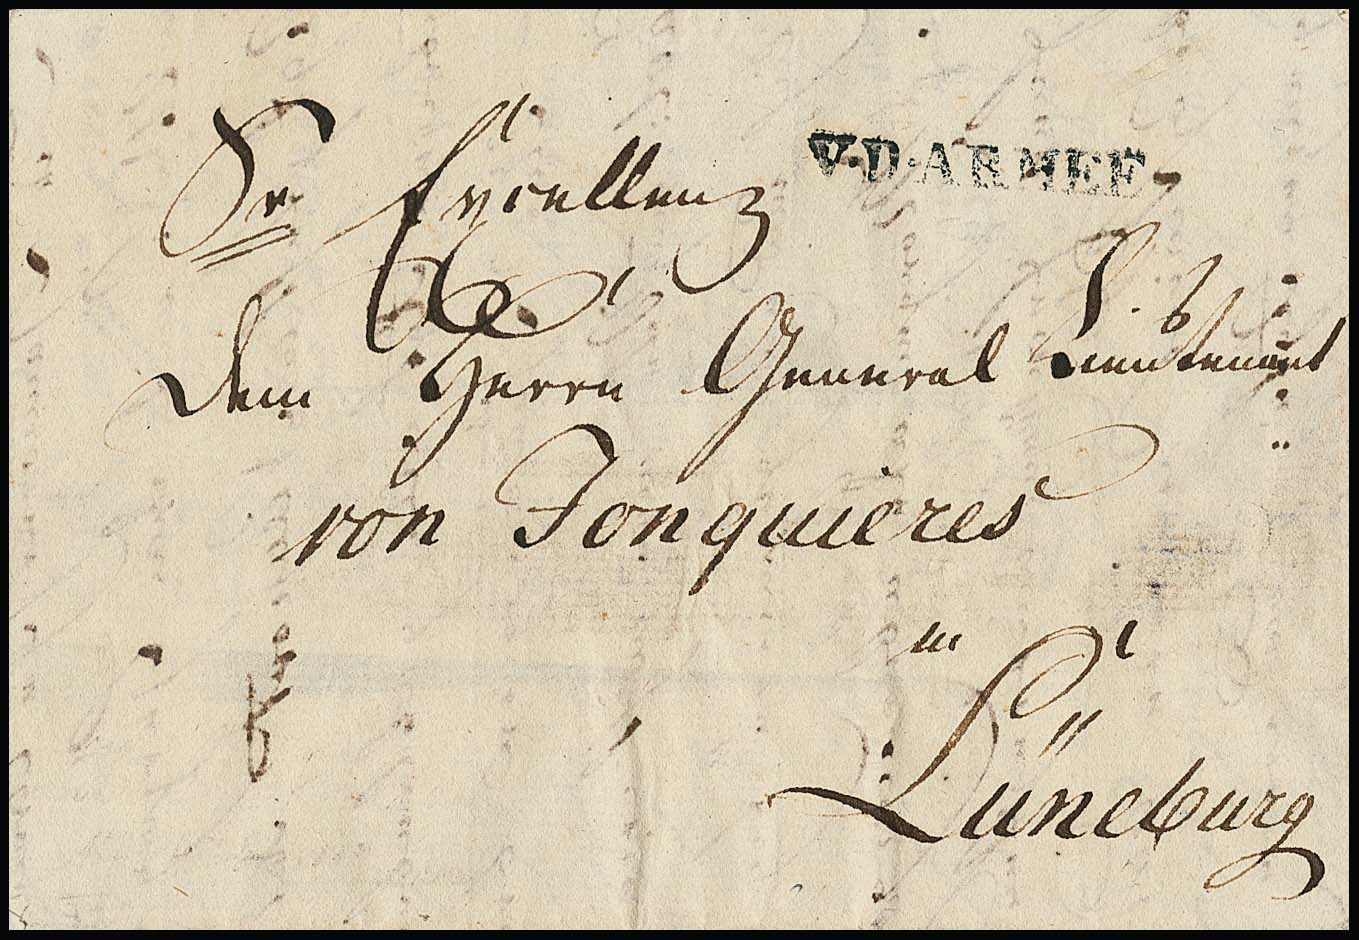 Sr Excellenz
V·D·ARMEE
dem Herrn General Lieutenant
von Jonquieres
in
Lüneburg